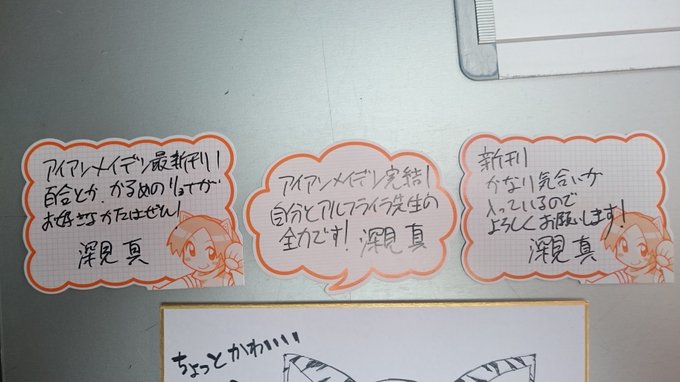 アイアンメイデン最新刊!
百合とか、かるめのリョナが
お好きなかたはぜひ!
深見 真
アイアンメイデン完結!
自分とアルフライラ先生の
全力です! 深見 真
新刊
かなり気合いが
入っているので
よろしくお願いします!
深見 真
ちょっとかわいい